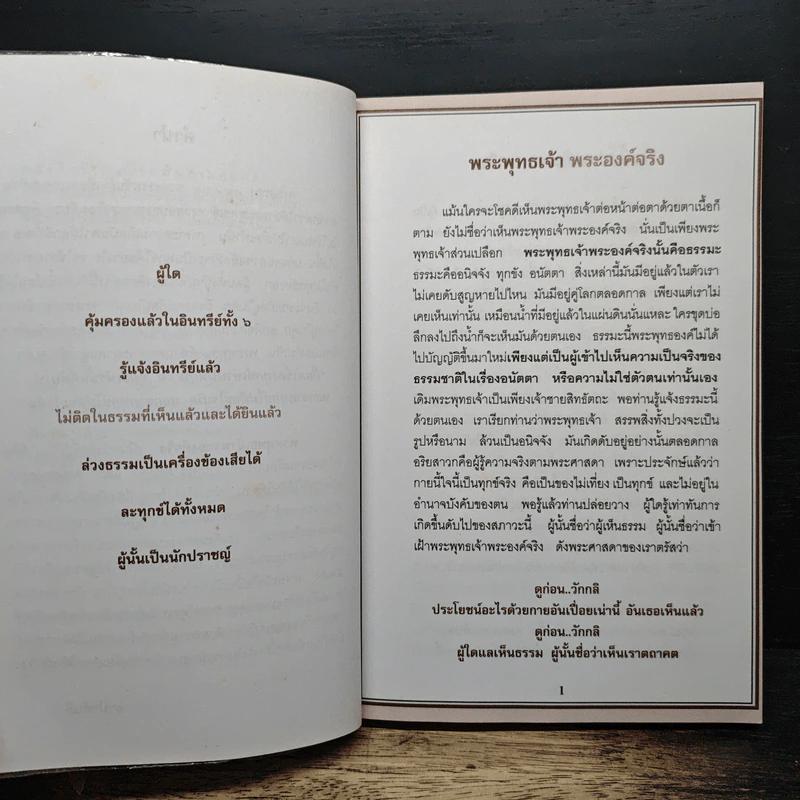 ผู้ใด
คุ้มครองแล้วในอินทรีย์ทั้ง ๖
รู้แจ้งอินทรีย์แล้ว
ไม่ติดในธรรมที่เห็นแล้วและได้ยินแล้ว
ล่วงธรรมเป็นเครื่องข้องเสียได้
ละทุกข์ได้ทั้งหมด
ผู้นั้นเป็นนักปราชญ์
พระพุทธเจ้า พระองค์จริง
แม้นใครจะโชคดีเห็นพระพุทธเจ้าต่อหน้าต่อตาด้วยตาเนื้อก็
ตาม ยังไม่ชื่อว่าเห็นพระพุทธเจ้าพระองค์จริง นั่นเป็นเพียงพระ
พุทธเจ้าส่วนเปลือก พระพุทธเจ้าพระองค์จริงนั้นคือธรรมะ
ธรรมะคืออนิจจัง ทุกขัง อนัตตา สิ่งเหล่านี้มันมีอยู่แล้วในตัวเรา
ไม่เคยดับสูญหายไปไหน มันมีอยู่คู่โลกตลอดกาล เพียงแต่เราไม่
เคยเห็นเท่านั้น เหมือนน้ำที่มีอยู่แล้วในแผ่นดินนั่นแหละ ใครขุดบ่อ
ลึกลงไปถึงน้ำก็จะเห็นมันด้วยตนเอง ธรรมะนี้พระพุทธองค์ไม่ได้
ไปบัญญัติขึ้นมาใหม่เพียงแต่เป็นผู้เข้าไปเห็นความเป็นจริงของ
ธรรมชาติในเรื่องอนัตตา หรือความไม่ใช่ตัวตนเท่านั้นเอง
เดิมพระพุทธเจ้าเป็นเพียงเจ้าชายสิทธัตถะ พอท่านรู้แจ้งธรรมะนี้
ด้วยตนเอง เราเรียกท่านว่าพระพุทธเจ้า สรรพสิ่งทั้งปวงจะเป็น
รูปหรือนาม ล้วนเป็นอนิจจัง มันเกิดดับอยู่อย่างนั้นตลอดกาล
อริยสาวกคือผู้รู้ความจริงตามพระศาสดา เพราะประจักษ์แล้วว่า
กายนี้ใจนี้เป็นทุกข์จริง คือเป็นของไม่เที่ยง เป็นทุกข์ และไม่อยู่ใน
อำนาจบังคับของตน พอรู้แล้วท่านปล่อยวาง ผู้ใดรู้เท่าทันการ
เกิดขึ้นดับไปของสภาวะนี้ ผู้นั้นชื่อว่าผู้เห็นธรรม ผู้นั้นชื่อว่าเข้า
เฝ้าพระพุทธเจ้าพระองค์จริง ดังพระศาสดาของเราตรัสว่า
ดูก่อน..วักกลิ
ประโยชน์อะไรด้วยกายอันเปื่อยเน่านี้ อันเธอเห็นแล้ว
ดูก่อน..วักกลิ
ผู้ใดแลเห็นธรรม ผู้นั้นชื่อว่าเห็นเราตถาคต
1